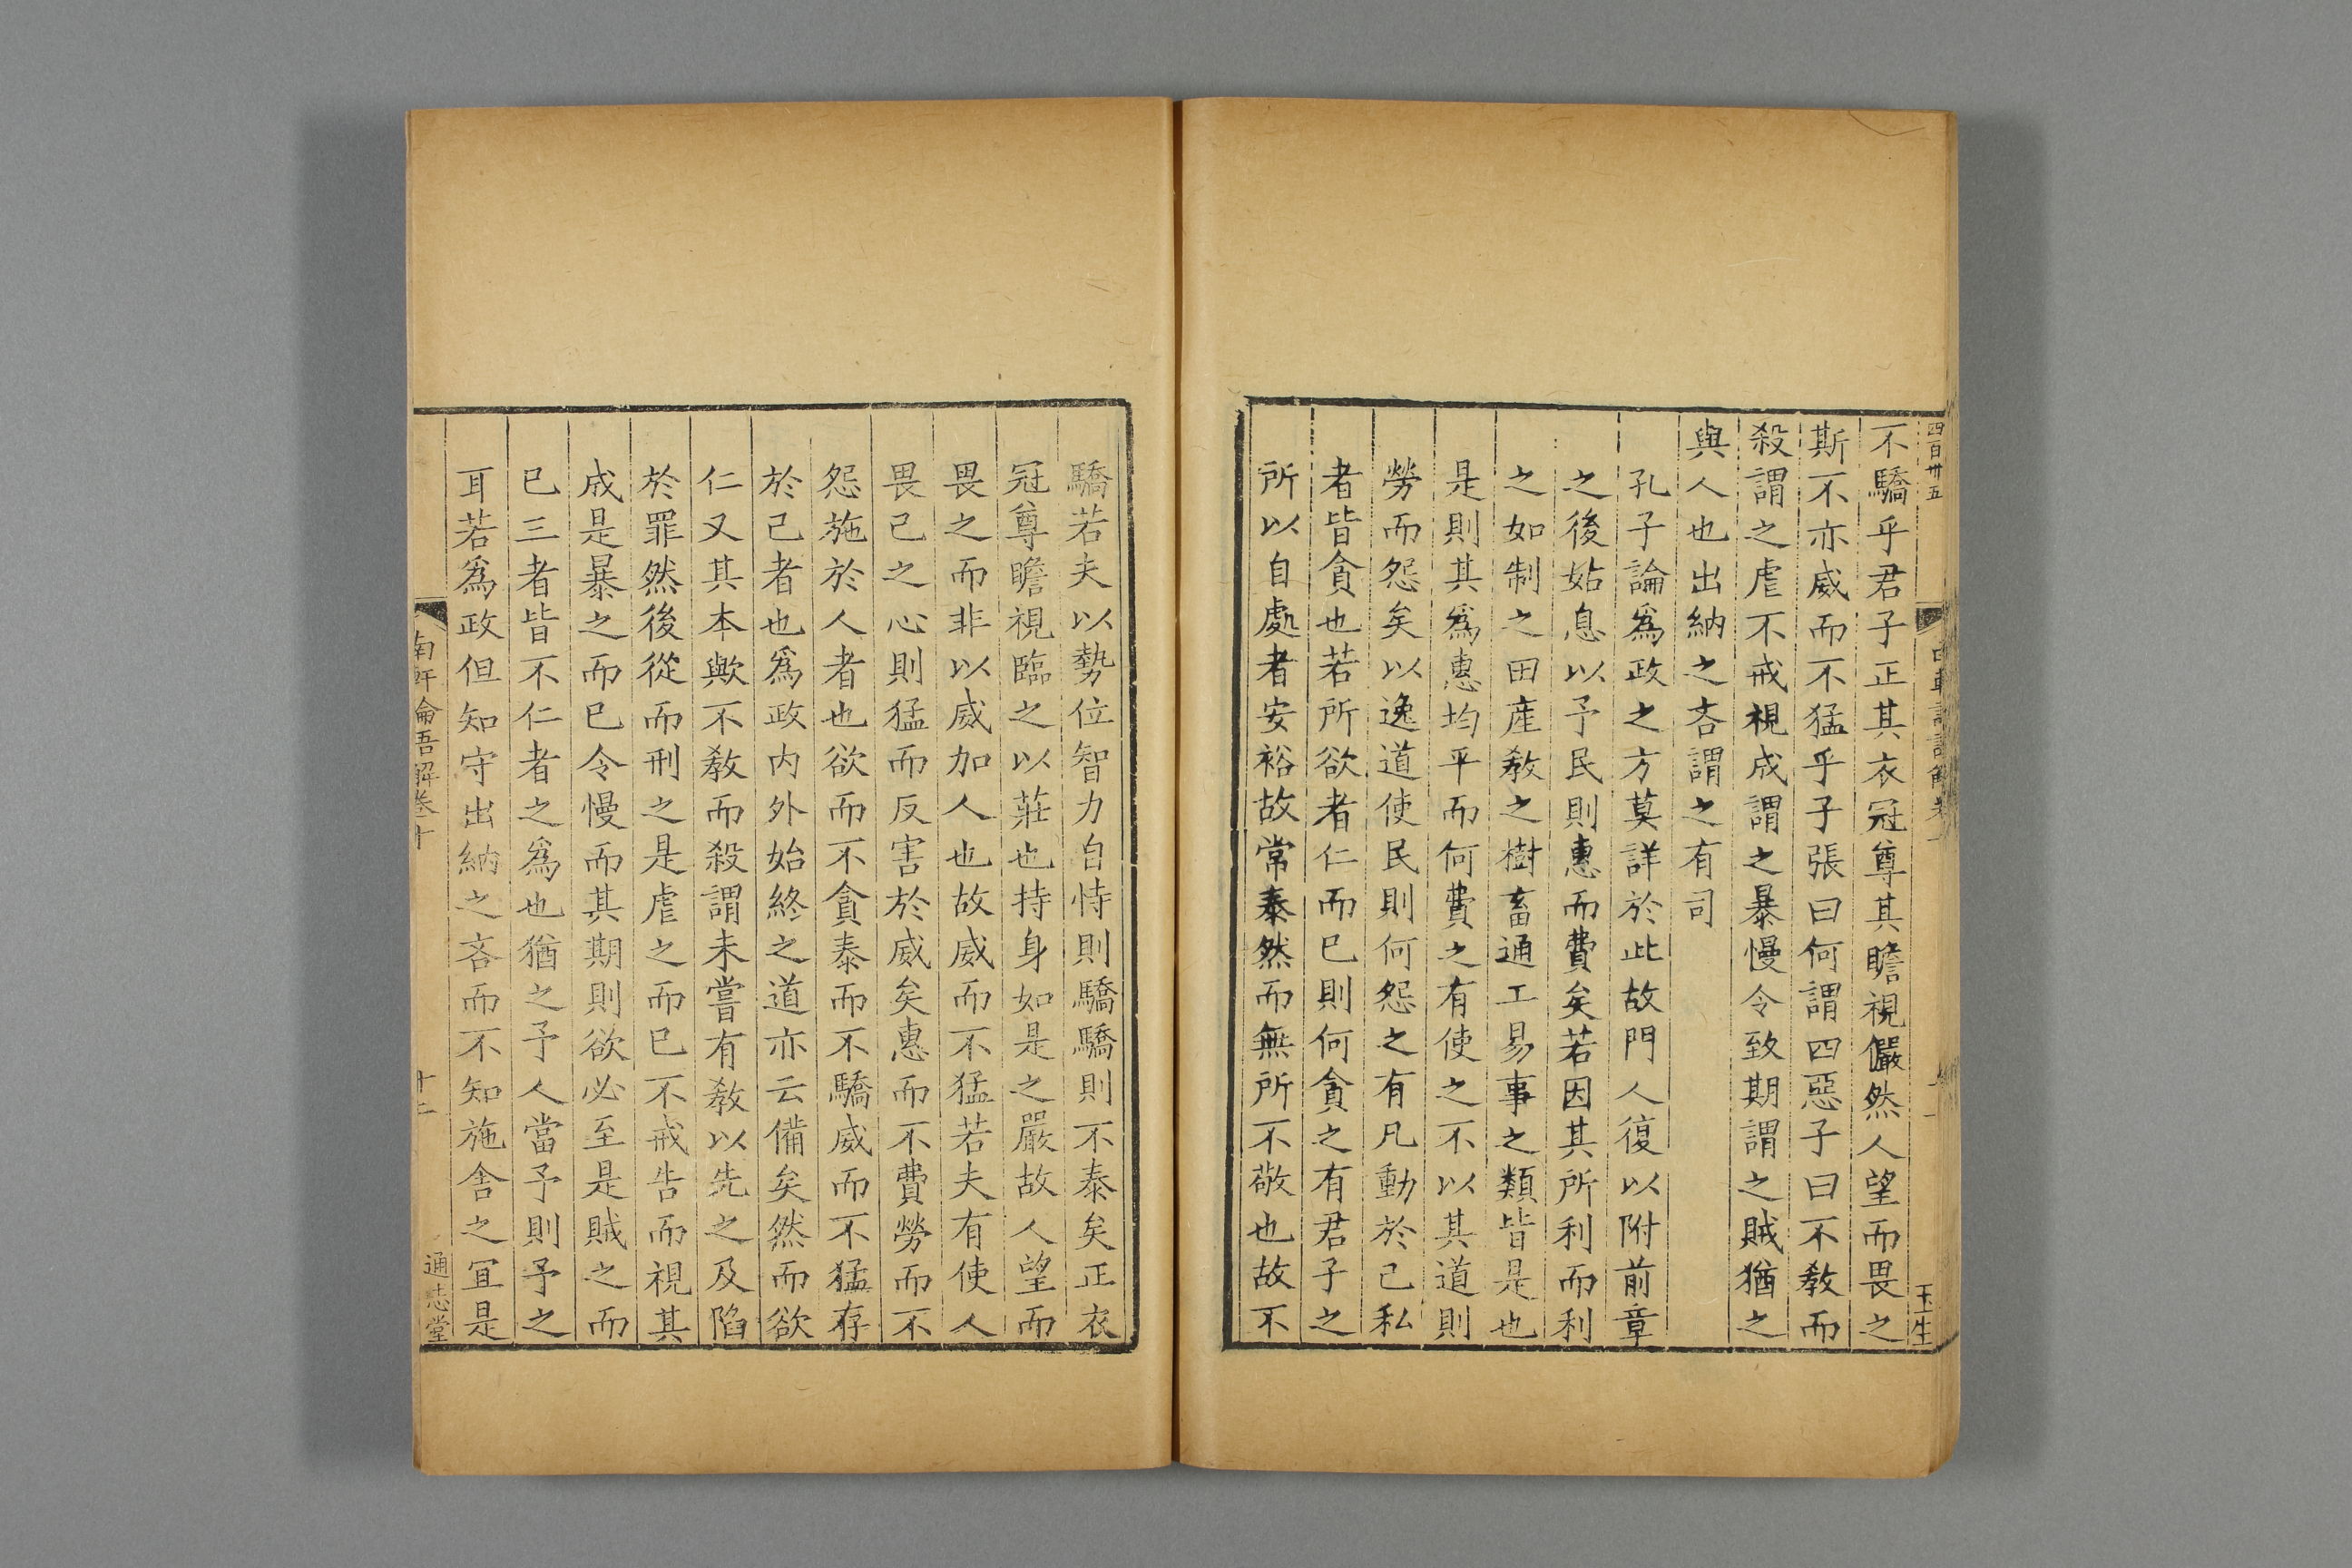 四百卅五
王生
不驕乎君子正其衣冠尊其瞻視儼然人望而畏之
斯不亦威而不猛乎子張曰何謂四惡子曰不敎而
殺謂之虐不戒視成謂之暴慢令致期謂之賊猶之
與人也出納之吝謂之有司
孔子論爲政之方莫詳於此故門人復以附前章
之後姑息以予民則惠而費矣若因其所利而利
之如制之田産敎之樹畜通工易事之類皆是也
是則其爲惠均平而何費之有使之不以其道則
勞而怨矣以逸道使民則何怨之有凡動於己私
者皆貪也若所欲者仁而已則何貪之有君子之
所以自處者安裕故常泰然而無所不敬也故不
驕若夫以勢位智力自恃則驕驕則不泰矣正衣
冠尊瞻視臨之以莊也持身如是之嚴故人望而
畏之而非以威加人也故威而不猛若夫有使人
畏己之心則猛而反害於威矣惠而不費勞而不
怨施於人者也欲而不貪泰而不驕威而不猛存
於己者也爲政内外始終之道亦云備矣然而欲
仁又其本歟不敎而殺謂未嘗有敎以先之及陷
於罪然後從而刑之是虐之而已不戒告而視其
成是暴之而已令慢而其期則欲必至是賊之而
已三者皆不仁者之爲也猶之予人當予則予之
耳若爲政但知守出納之吝而不知施舍之宜是
南軒論語解卷十
十二
通志堂